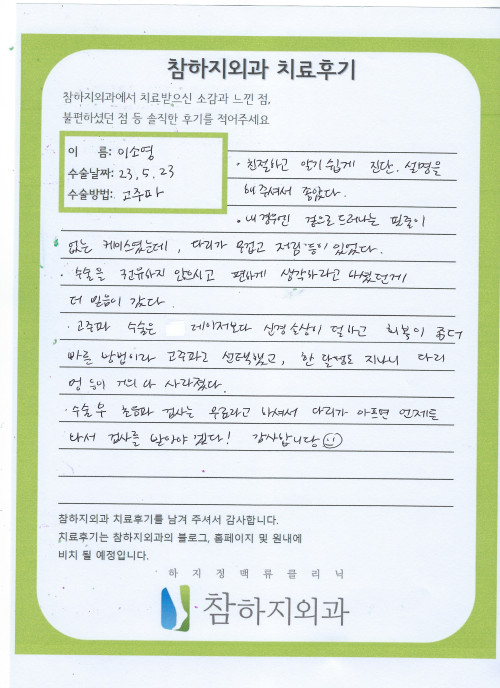 참하지외과 치료후기
참하지외과에서 치료받으신 소감과 느낀 점,
불편하셨던 점 등 솔직한 후기를 적어주세요
이 름: 이소영
수술날짜: 23. 5. 23
수술방법: 고주파
· 친절하고 알기 쉽게 진단. 설명을
해 주셔서 좋았다.
· 내 경우엔 겉으로 드러나는 핏줄이
없는 케이스였는데, 다리가 무겁고 저림 등이 있었다.
· 수술을 권유하지 않으시고 편하게 생각하라고 하셨던게
더 믿음이 갔다.
· 고주파 수술은 레이저보다 신경손상이 덜하고 회복이 좀더
빠른 방법이라 고주파로 선택했고, 한 달정도 지나니 다리
멍 등이 거의 다 사라졌다.
· 수술 후 초음파 검사는 무료라고 하셔서 다리가 아프면 언제든
와서 검사를 받아야 겠다! 감사합니다
참하지외과 치료후기를 남겨 주셔서 감사합니다.
치료후기는 참하지외과의 블로그, 홈페이지 및 원내에
비치 될 예정입니다.
하지정맥류클리닉
참하지외과